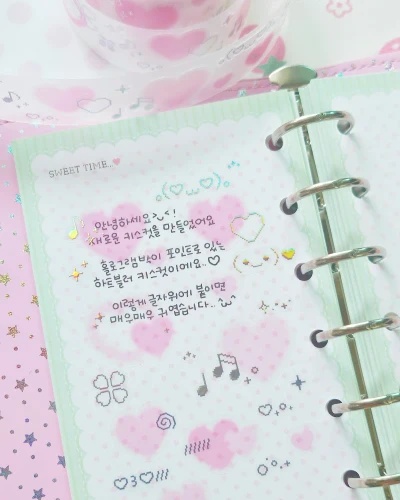 SWEET TIME..♥
안녕하세요>_<!
새로운 키스컷을 만들었어요
홀로그램박이 포인트로 있는
하트블러 키스컷이에요..♡
이렇게 글자위에 붙이면
매우매우 귀엽습니다.. ^ω^